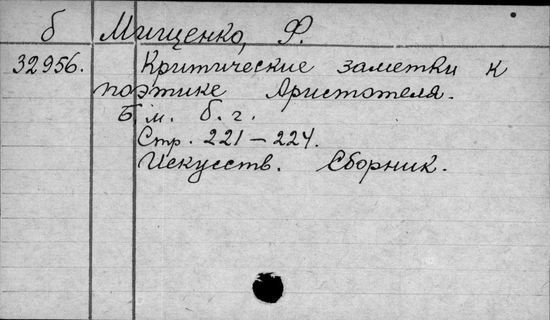 б Мищенко, Ф.
32956. Критические заметки к
поэтике Аристотеля.
Б м. б. г.
Стр. 221 – 224.
Искусств. Сборник.